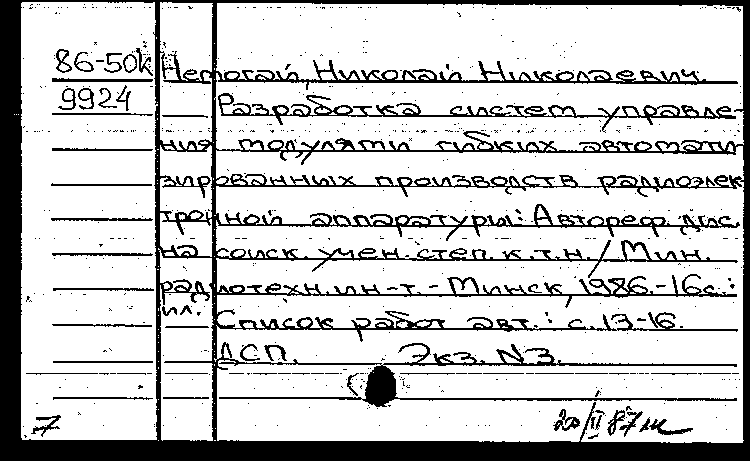 86-50к Немогай, Николай Николаевич.
9924 Разработка систем управле-
ния модулями гибких автомати
зированных производств радиоэлек
тронной аппаратуры: Автореф. дис.
на соиск. учен. степ. к.т.н. / Мин.
радиотехн. ин-т. - Минск, 1986. - 16с.:
ил.
Список работ авт.: с. 13-16.
ДСП. Экз. N3.
7